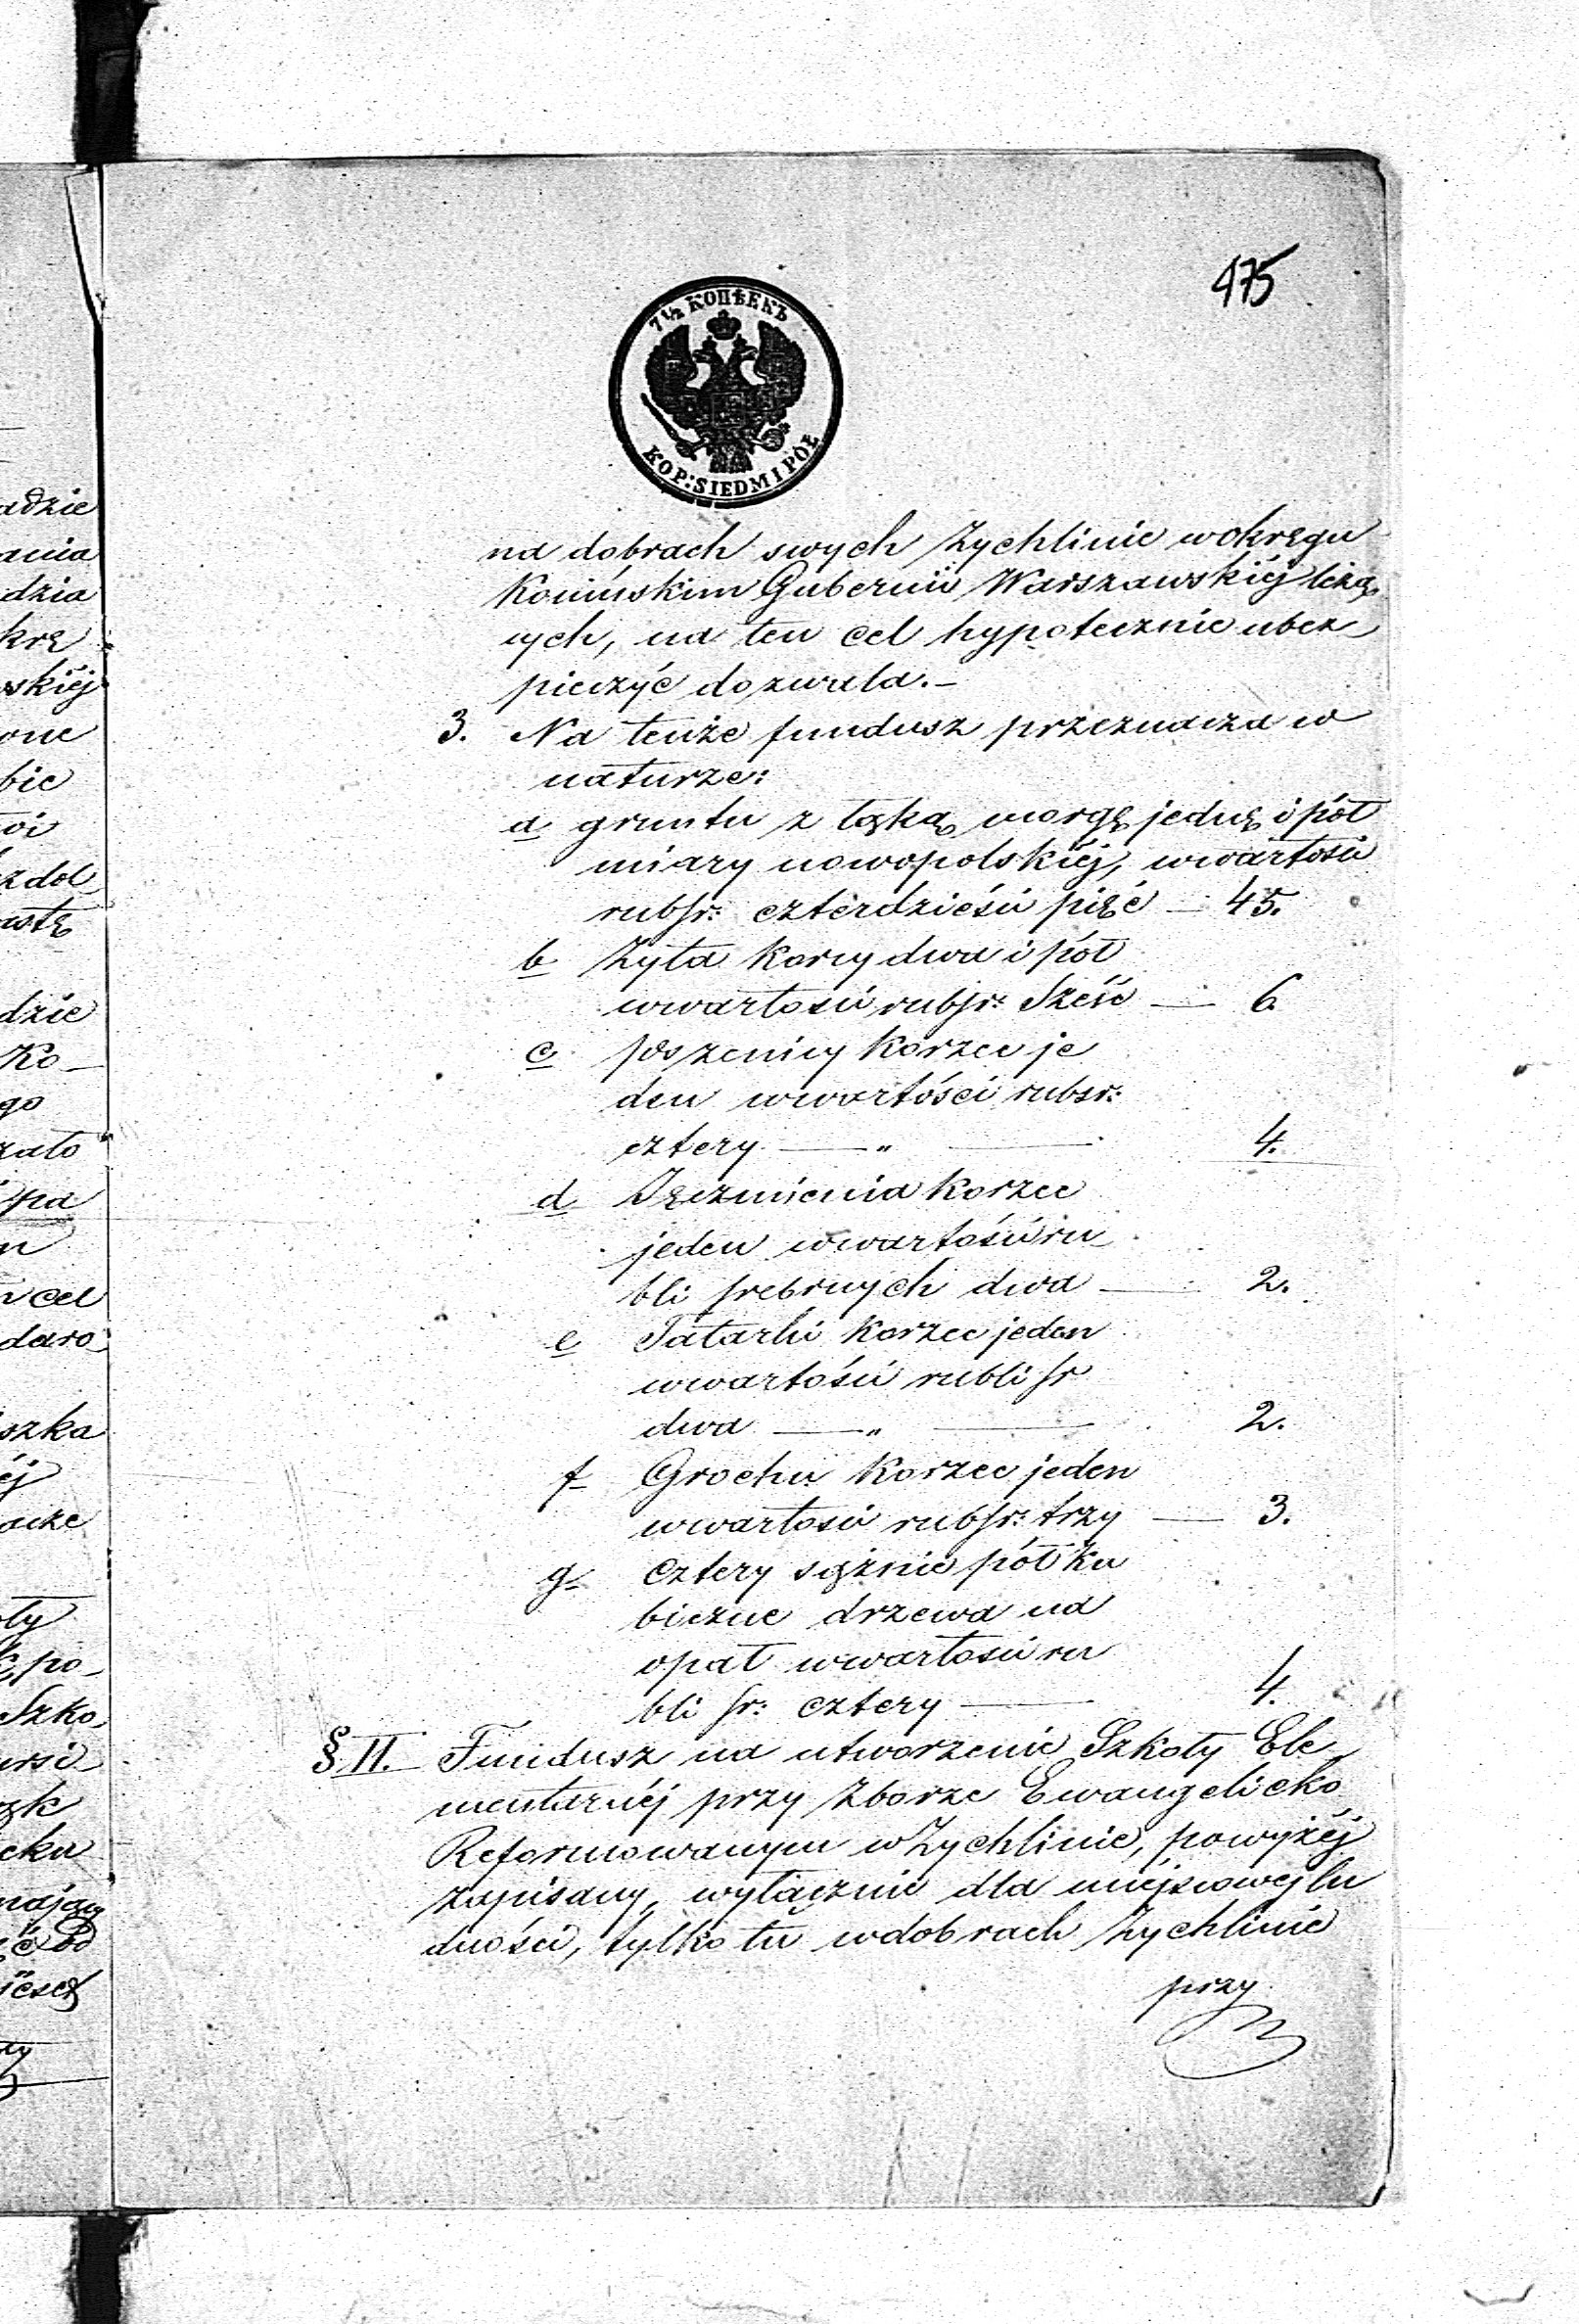 475
7½ КОПѢЕКЪ
KOP: SIEDM I PÓŁ
na dobrach swych Żychlinie w okręgu
Konińskim Gubernii Warszawskiéj leżą„
cych, na ten cel hypotecznie ubez„
pieczyć dozwala.–
3. Na tenże fundusz przeznacza w
naturze:
a gruntu z łąką morgę jednę i pół
miary nowopolskiéj, w wartości
rubsr: czterdzieści pięć — 45.
b Żyta korcy dwa i pół
w wartości rubsr: Sześć — 6.
c pszenicy korzec je
den w wartości rubsr:
cztery — „ — 4.
d Jęczmienia korzec
jeden w wartości ru
bli srebrnych dwa — 2.
e Tatarki korzec jeden
w wartości rubli sr
dwa — „ — 2.
f Grochu korzec jeden
w wartości rubsr: trzy — 3.
g cztery sążnie pół ku
biczne drzewa na
opał w wartości ru
bli sr: cztery — 4.
§ II. Fundusz na utworzenie Szkoły Ele
mentarnéj przy Zborze Ewangelicko
Reformowanym w Żychlinie, powyżéj
zapisany, wyłącznie dla miéjscowej lu
dności, tylko tu w dobrach Żychlinie
przy
adzie
ania
dzia
krę
skiéj
one
bie
dol
astę
dzie
Ko–
go
zało
pa
cel
daro
szka
éj
acze
oły
po–
Szko„
ursi
eku